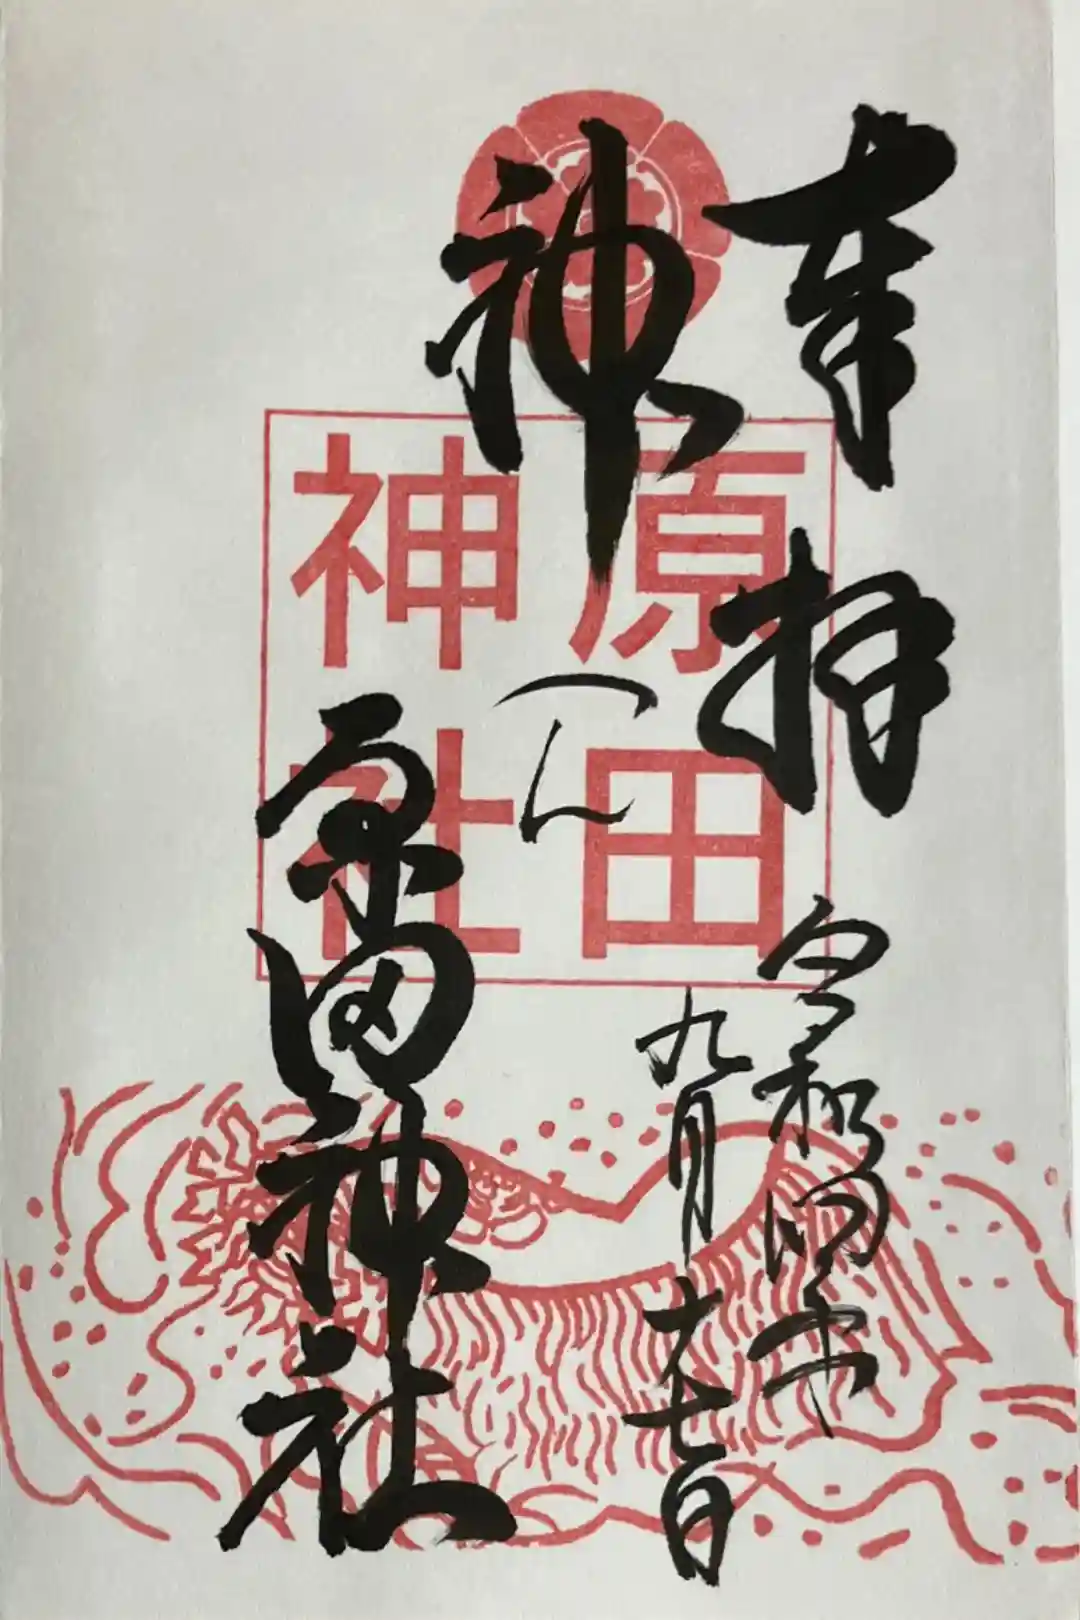 奉拝
令和四年
九月十七日
神
へん
原田神社
原田
神社